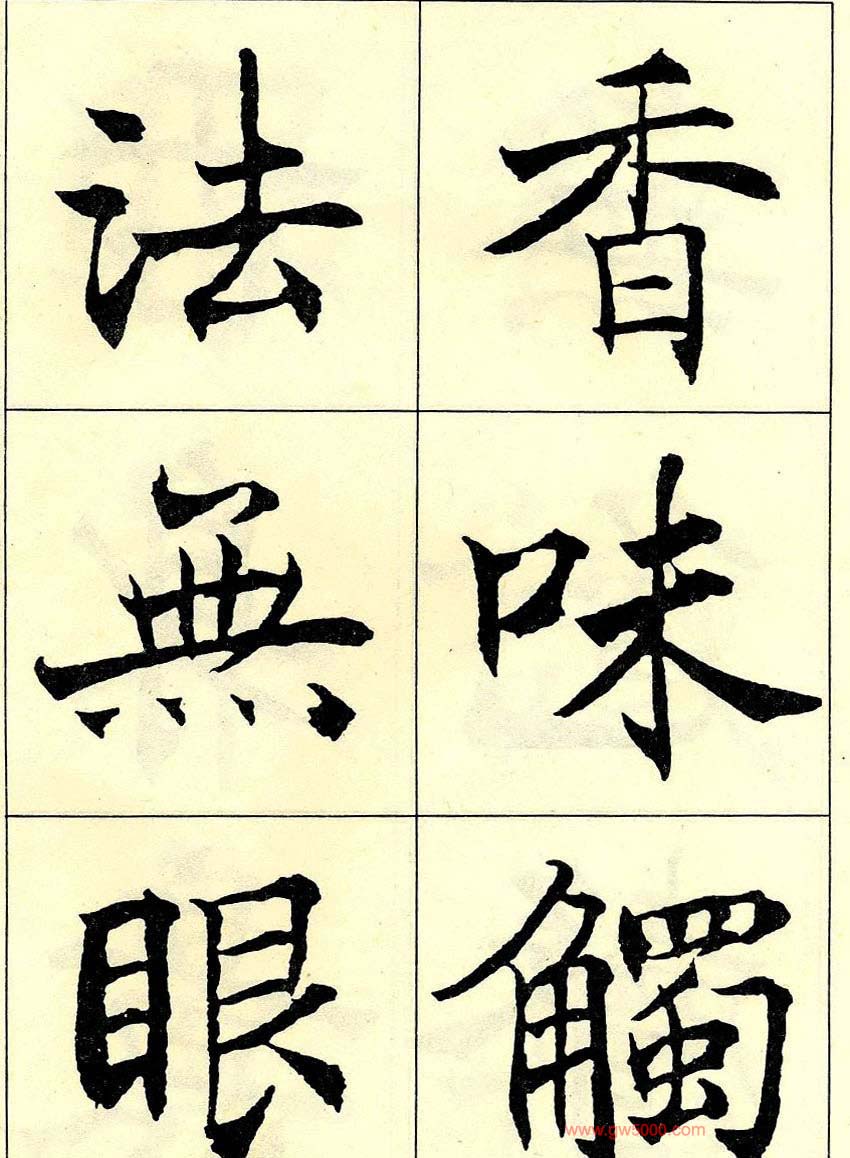 香味觸
法無眼
www.gw5000.com